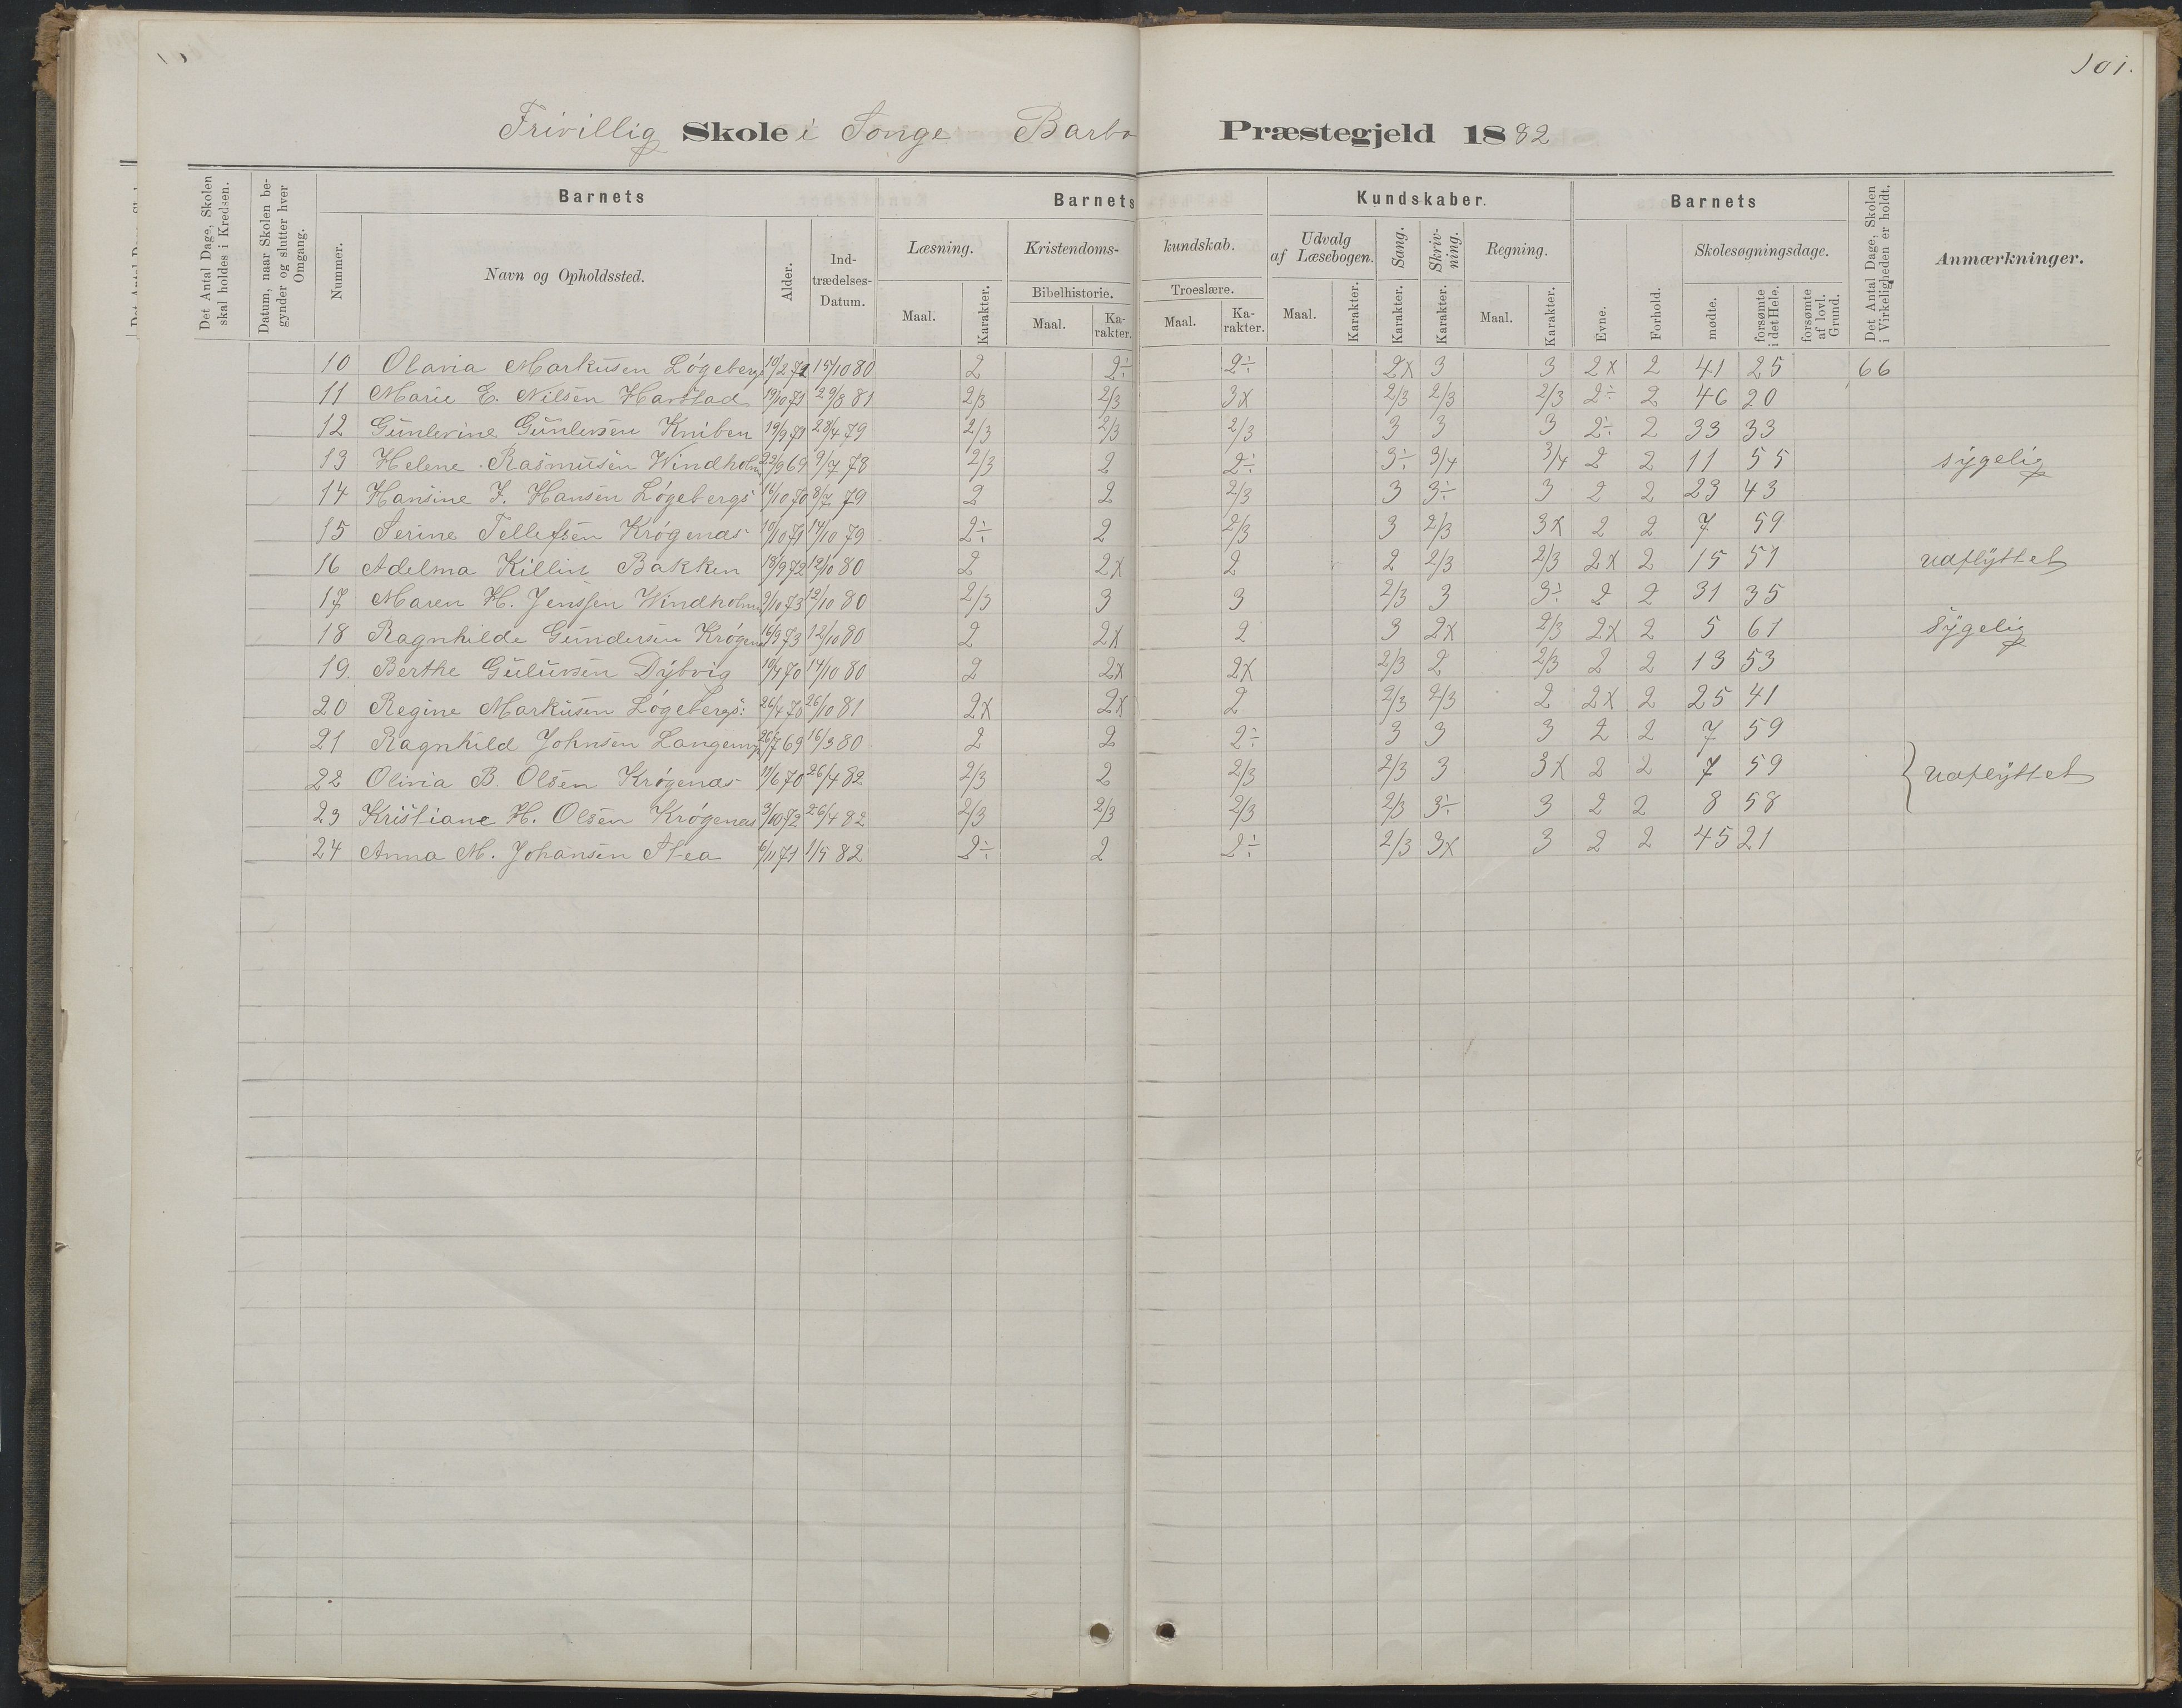 101.
Frivillig Skole i Songe Barbo Præstegjeld 1882
Det Antal Dage, Skolen skal holdes i Kredsen.
Datum, naar Skolen begynder og slutter hver Omgang.
Barnets
Nummer.
Navn og Opholdssted.
Alder.
Indtrædelses-Datum.
Barnets Kundskaber.
Læsning.
Maal. Karakter.
Kristendomskundskab.
Bibelhistorie.
Maal. Karakter.
Troeslære.
Maal. Karakter.
Udvalg af Læsebogen.
Maal. Karakter.
Sang.
Karakter.
Skrivning.
Karakter.
Regning.
Maal. Karakter.
Barnets
Evne.
Forhold.
Skolesøgningsdage.
mødte.
forsømte i det Hele.
forsømte af lovl. Grund.
Det Antal Dage, Skolen i Virkeligheden er holdt.
Anmærkninger.
10 Olavia Markusen Løgebergs 10/2 72 15/10 80 2 2÷ 2÷ 2x 3 3 2x 2 41 25 66
11 Marie E. Nilsen Harstad 19/10 71 29/8 81 2/3 2/3 3x 2/3 2/3 2/3 2÷ 2 46 20
12 Gunlevine Gunlevsen Kniben 19/9 71 28/4 79 2/3 2/3 2/3 3 3 3 2÷ 2 33 33
13 Helene Rasmusen Windholm 22/9 69 9/7 78 2/3 2 2÷ 3÷ 3/4 3/4 2 2 11 55 sygelig
14 Hansine J. Hansen Løgebergs 16/10 70 8/7 79 2 2 2/3 3 3÷ 3 2 2 23 43
15 Serine Tellefsen Krøgenæs 10/10 71 14/10 79 2÷ 2 2/3 3 2/3 3x 2 2 7 59
16 Adelma Killin Bakken 18/9 72 12/10 80 2 2x 2 2 2/3 2/3 2x 2 15 51 udflyttet
17 Maren H. Jenssen Windholm 9/10 73 12/10 80 2/3 3 3 2/3 3 3÷ 2 2 31 35
18 Ragnhilde Gundersen Krøgenæs 16/9 73 12/10 80 2 2x 2 3 2x 2/3 2x 2 5 61 sygelig
19. Berthe Gulüvsen Dybvig 10/4 70 14/10 80 2 2x 2x 2/3 2 2/3 2 2 13 53
20 Regine Markusen Løgebergs: 26/4 70 26/10 81 2x 2x 2 2/3 2/3 2 2x 2 25 41
21 Ragnhild Johnsen 26/7 69 16/3 80 2 2 2÷ 3 3 3 2 2 7 59
22 Olivia B. Olsen Krøgenæs 11/6 70 26/4 82 2/3 2 2/3 2/3 3 3x 2 2 7 59 } udflyttet
23 Kristiane H. Olsen Krøgenæs 3/10 72 26/4 82 2/3 2/3 2/3 2/3 3÷ 3 2 2 8 58
24 Anna M. Johansen Stea 6/11 71 1/5 82 2÷ 2 2÷ 2/3 3x 3 2 2 45 21